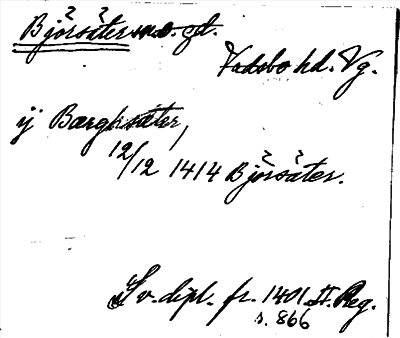 Björsäter sn o. gd.
Vadsbo hd. Vg.
ij Bærghsæter,
12/12 1414 Björsäter.
Sv. dipl. fr. 1401 II. Reg.
s. 866